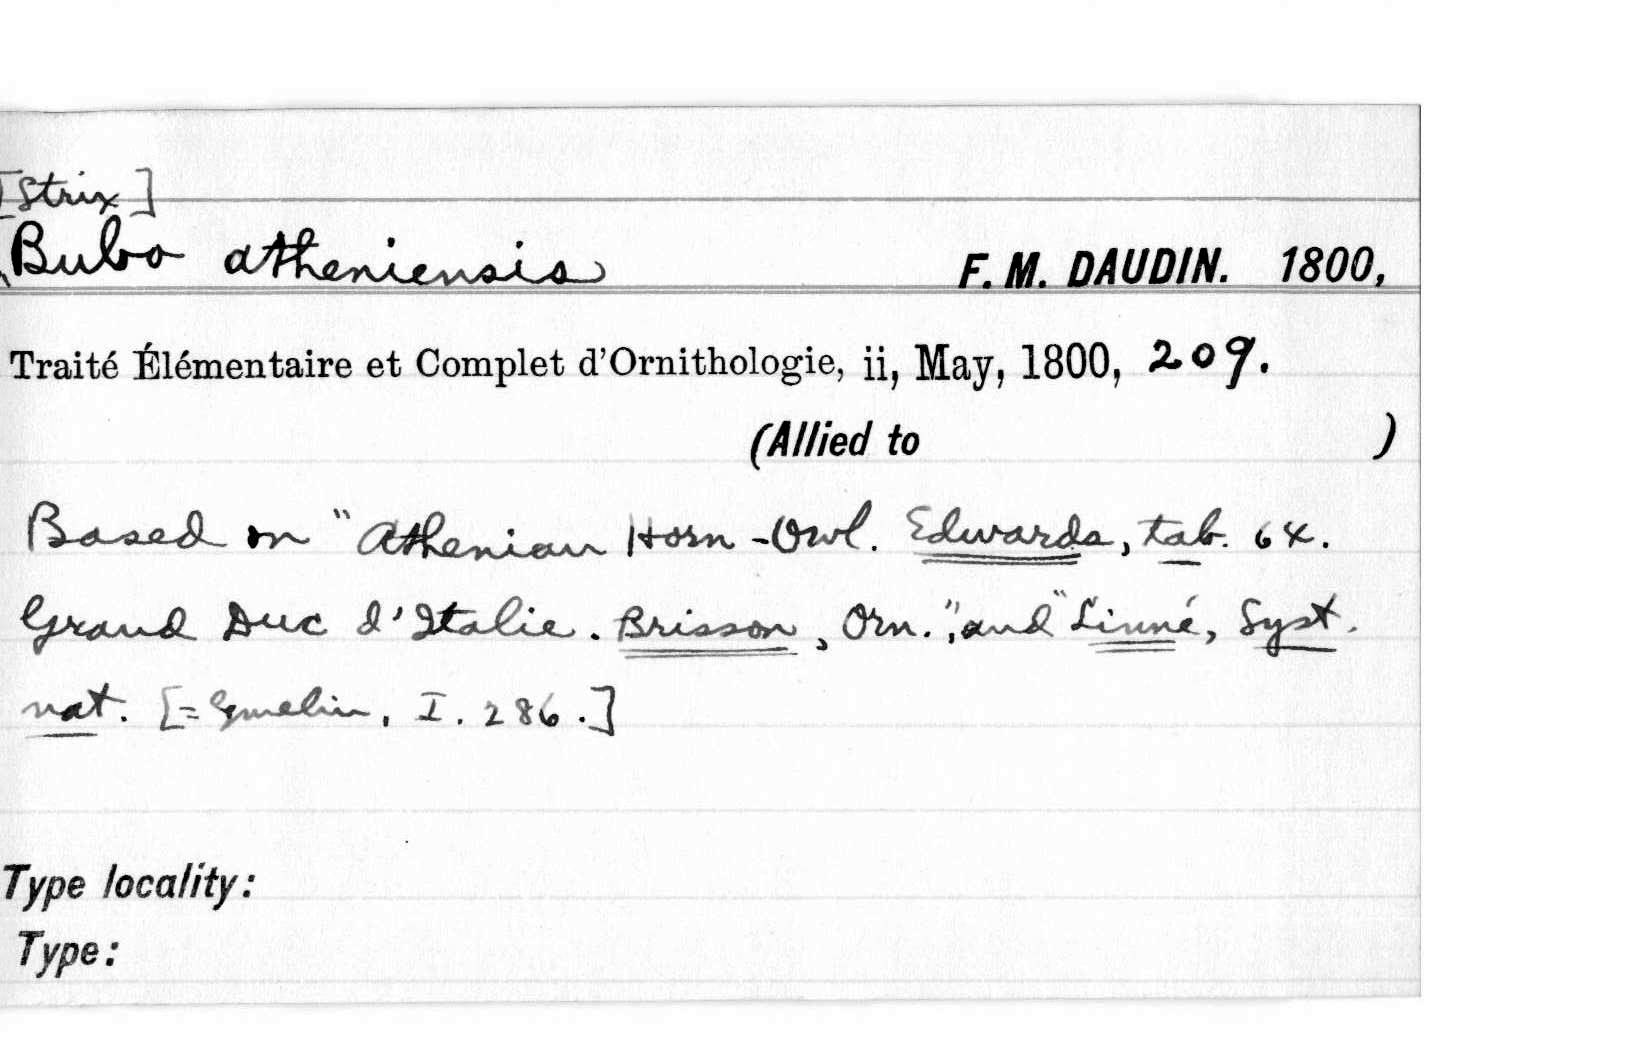 [Strix]
Bubo atheniensis F. M. DAUDIN. 1800,
Traité Élémentaire et Complet d'Ornithologie, ii, May, 1800, 209.
(Allied to )
Based on "Athenian Horn-Owl. Edwards, tab. 64.
Grand Duc d'Italie. Brisson, Orn.", and "Linné, Syst.
nat. [= Gmelin, I. 286.]
Type locality:
Type: